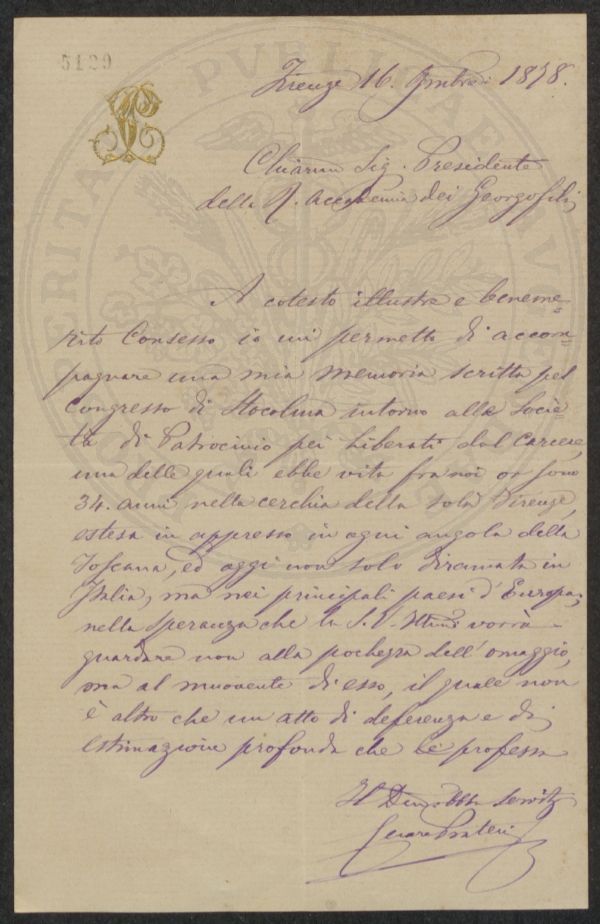 5129
Firenze 16. 9mbre: 1878.
Chiarmo Sig. Presidente
della R. Accademia dei Georgofili
A cotesto illustre e beneme=
rito Consesso io mi permetto di accom=
pagnare una mia memoria scritta pel
Congresso di Stocolma intorno alle Socie=
tà di Patrocinio pei liberati dal Carcere,
una delle quali ebbe vita fra noi or sono
34. anni nella cerchia della sola Firenze,
estesa in appresso in ogni angolo della
Toscana, ed oggi non solo diramata in
Italia, ma nei principali paesi d'Europa;
nella speranza che la S.V. Illma vorrà
guardare non alla pochezza dell'omaggio,
ma al movente di esso, il quale non
è altro che un atto di deferenza e di
estimazione profonda che Le professa
Il Devmo